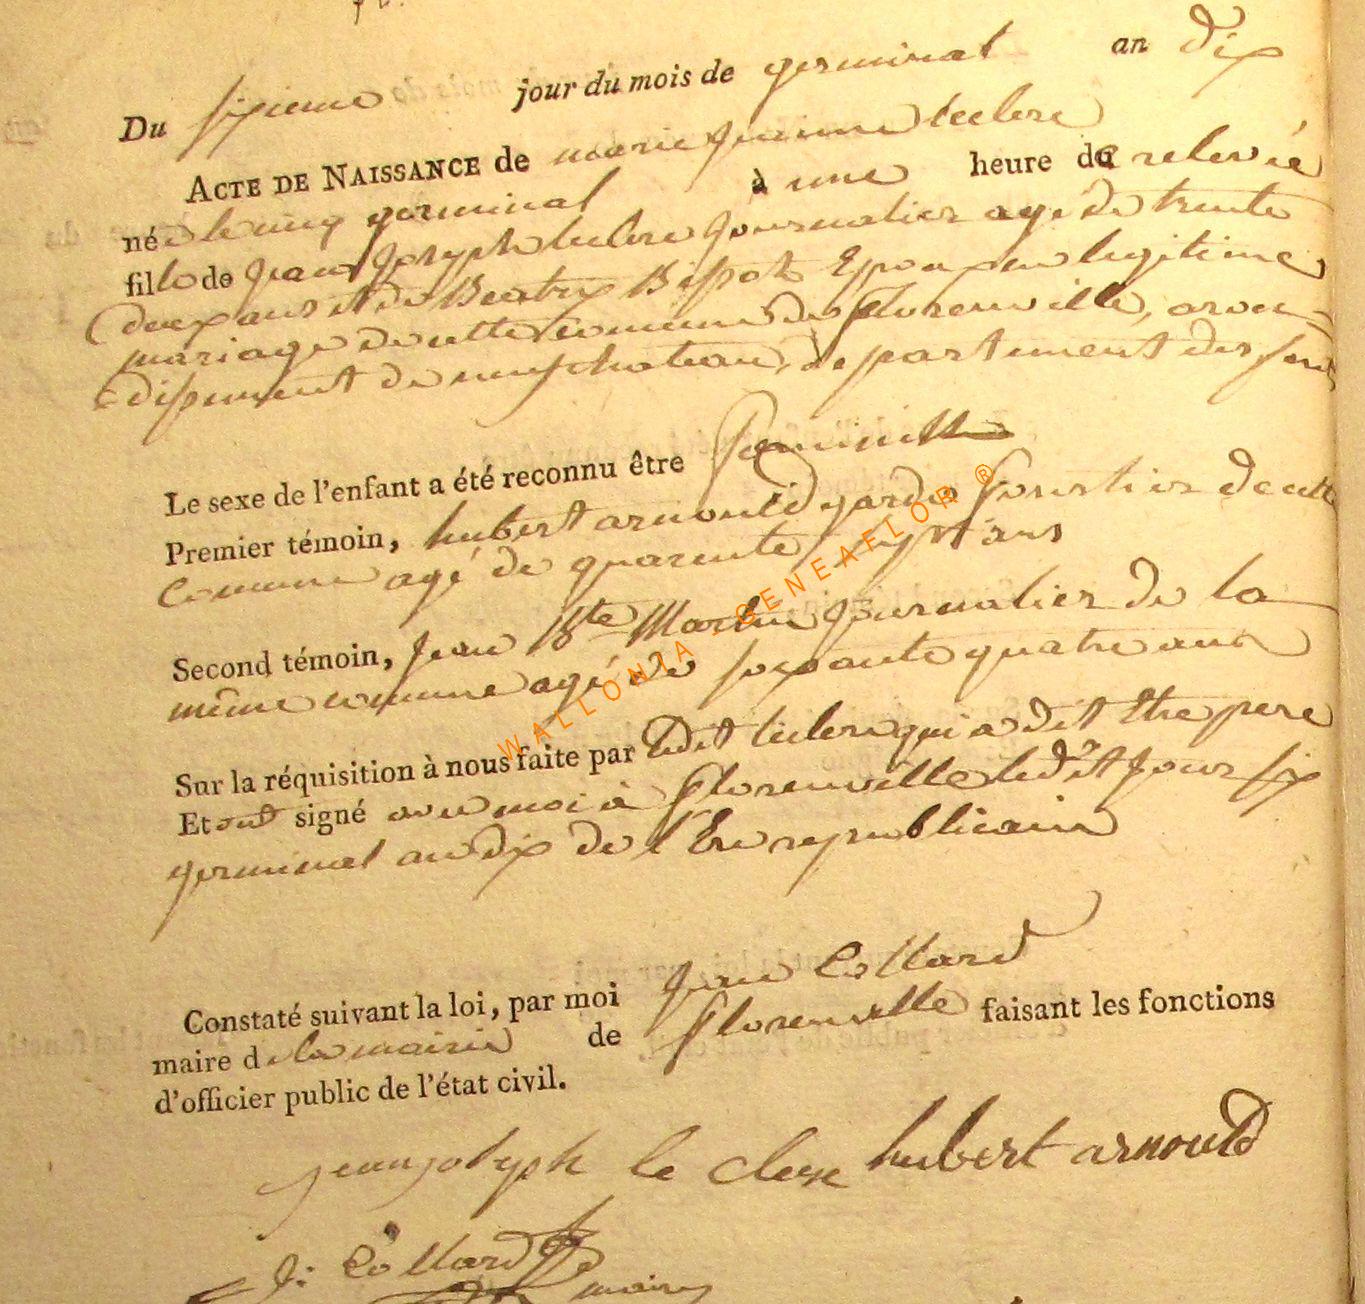 Du sixieme jour du mois de germinal an dix
ACTE DE NAISSANCE de marie jeanne leclere
née le cinq germinal à une heure de relevée
fille de jean joseph leclere journalier agé de trente
deux ans et de Beatrix Bissot Epoux en legitime
mariage de cette commune de florenville, aron-
dissement de neufchateau, departement des foret
Le sexe de l'enfant a été reconnu être feminin
Premier témoin, hubert arnould garde forestier de cette
commune agé de quarente sept ans
Second témoin, jean Bte Martin journalier de la
même commune agé de soixante quatre ans
Sur la réquisition à nous faite par ledit leclere qui a dit Etre pere
Et ont signé avec moi à florenville ledit jour six
germinal an dix de l'Ere republicaine
Constaté suivant la loi, par moi jean Collard
maire de la mairie de florenville faisant les fonctions
d'officier public de l'état civil.
jean joseph le clere hubert arnould
J: Collard maire
WALLONIA - GENEAFLOR ®